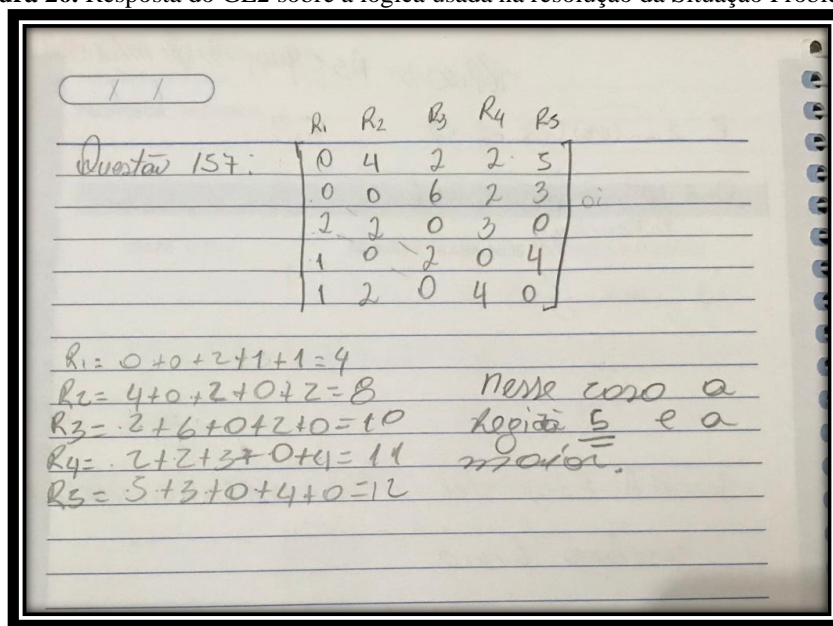 Resposta do GE2 sobre a lógica usada na resolução da Situação
/ /
R1 R2 R3 R4 R5
Questão 157:
0 4 2 2 5
0 0 6 2 3
2 2 0 3 0
1 0 2 0 4
1 2 0 4 0
R1= 0+0+2+1+1=4
R2= 4+0+2+0+2=8
R3= 2+6+0+2+0=10
R4= 2+2+3+0+4=11
R5= 5+3+0+4+0=12
nesse caso a
Região 5 e a
maior.